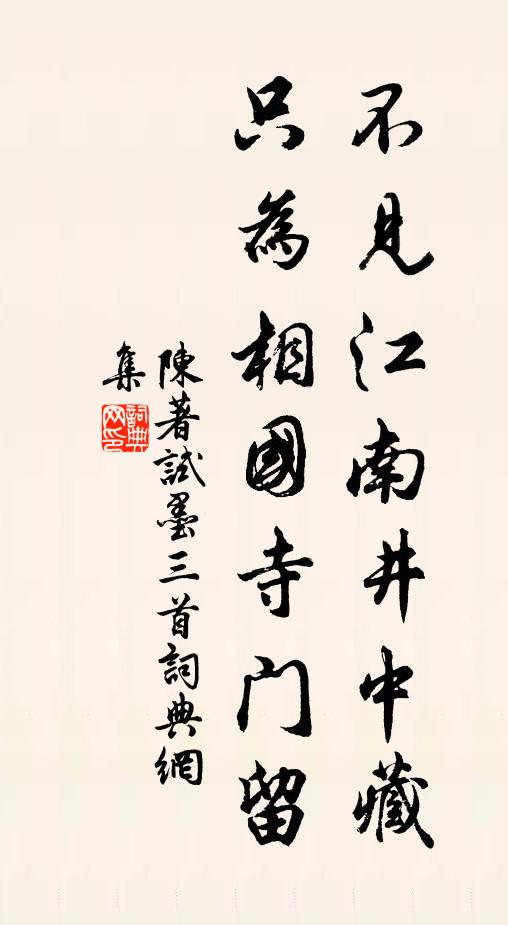 不見江南井中藏
只為相國寺門留
陳著試墨三首詞典網
集
詞典網印